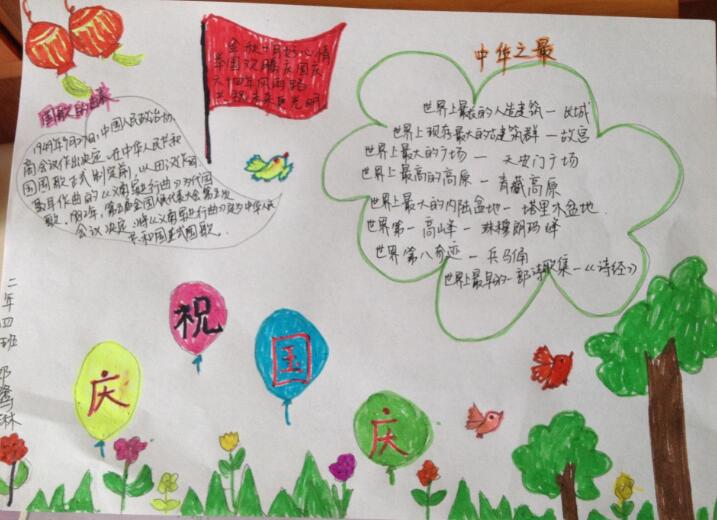 金秋十月好心情
举国欢腾庆国庆
六十四年风雨路
共祝未来更光明
国歌的由来
1949年9月27日,中国人民政治协
商会议作出决定,在中华人民共和
国国歌正式制定前,以田汉作词
聂耳作曲的《义勇军进行曲》为代国
歌。1982年,第五届全国人民代表大会第五次
会议决定:将《义勇军进行曲》定为中华人民
共和国正式国歌。
中华之最
世界上最长的人造建筑—长城
世界上现存最大的古建筑群—故宫
世界上最大的广场—天安门广场
世界上最高的高原—青藏高原
世界上最大的内陆盆地—塔里木盆地
世界第一高峰—珠穆朗玛峰
世界第八奇迹—兵马俑
世界上最早的一部诗歌集—《诗经》
庆
祝
国
庆
二年四班